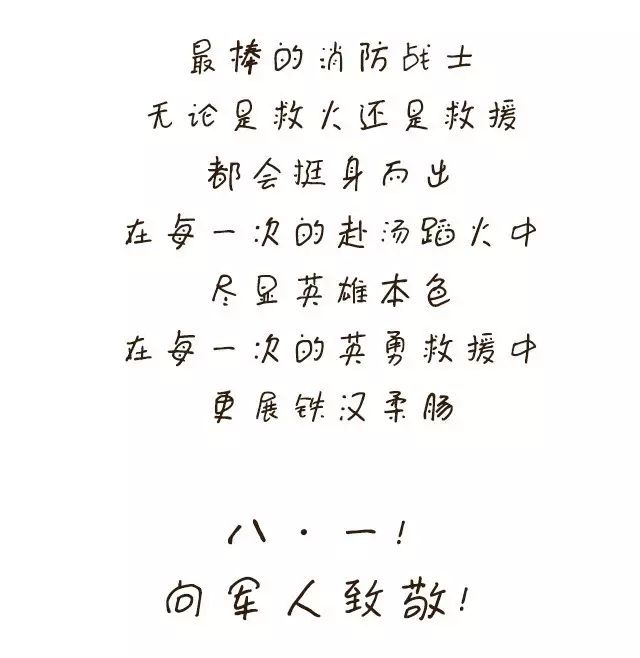 最棒的消防战士
无论是救火还是救援
都会挺身而出
在每一次的赴汤蹈火中
尽显英雄本色
在每一次的英勇救援中
更展铁汉柔肠
八·一!
向军人致敬!